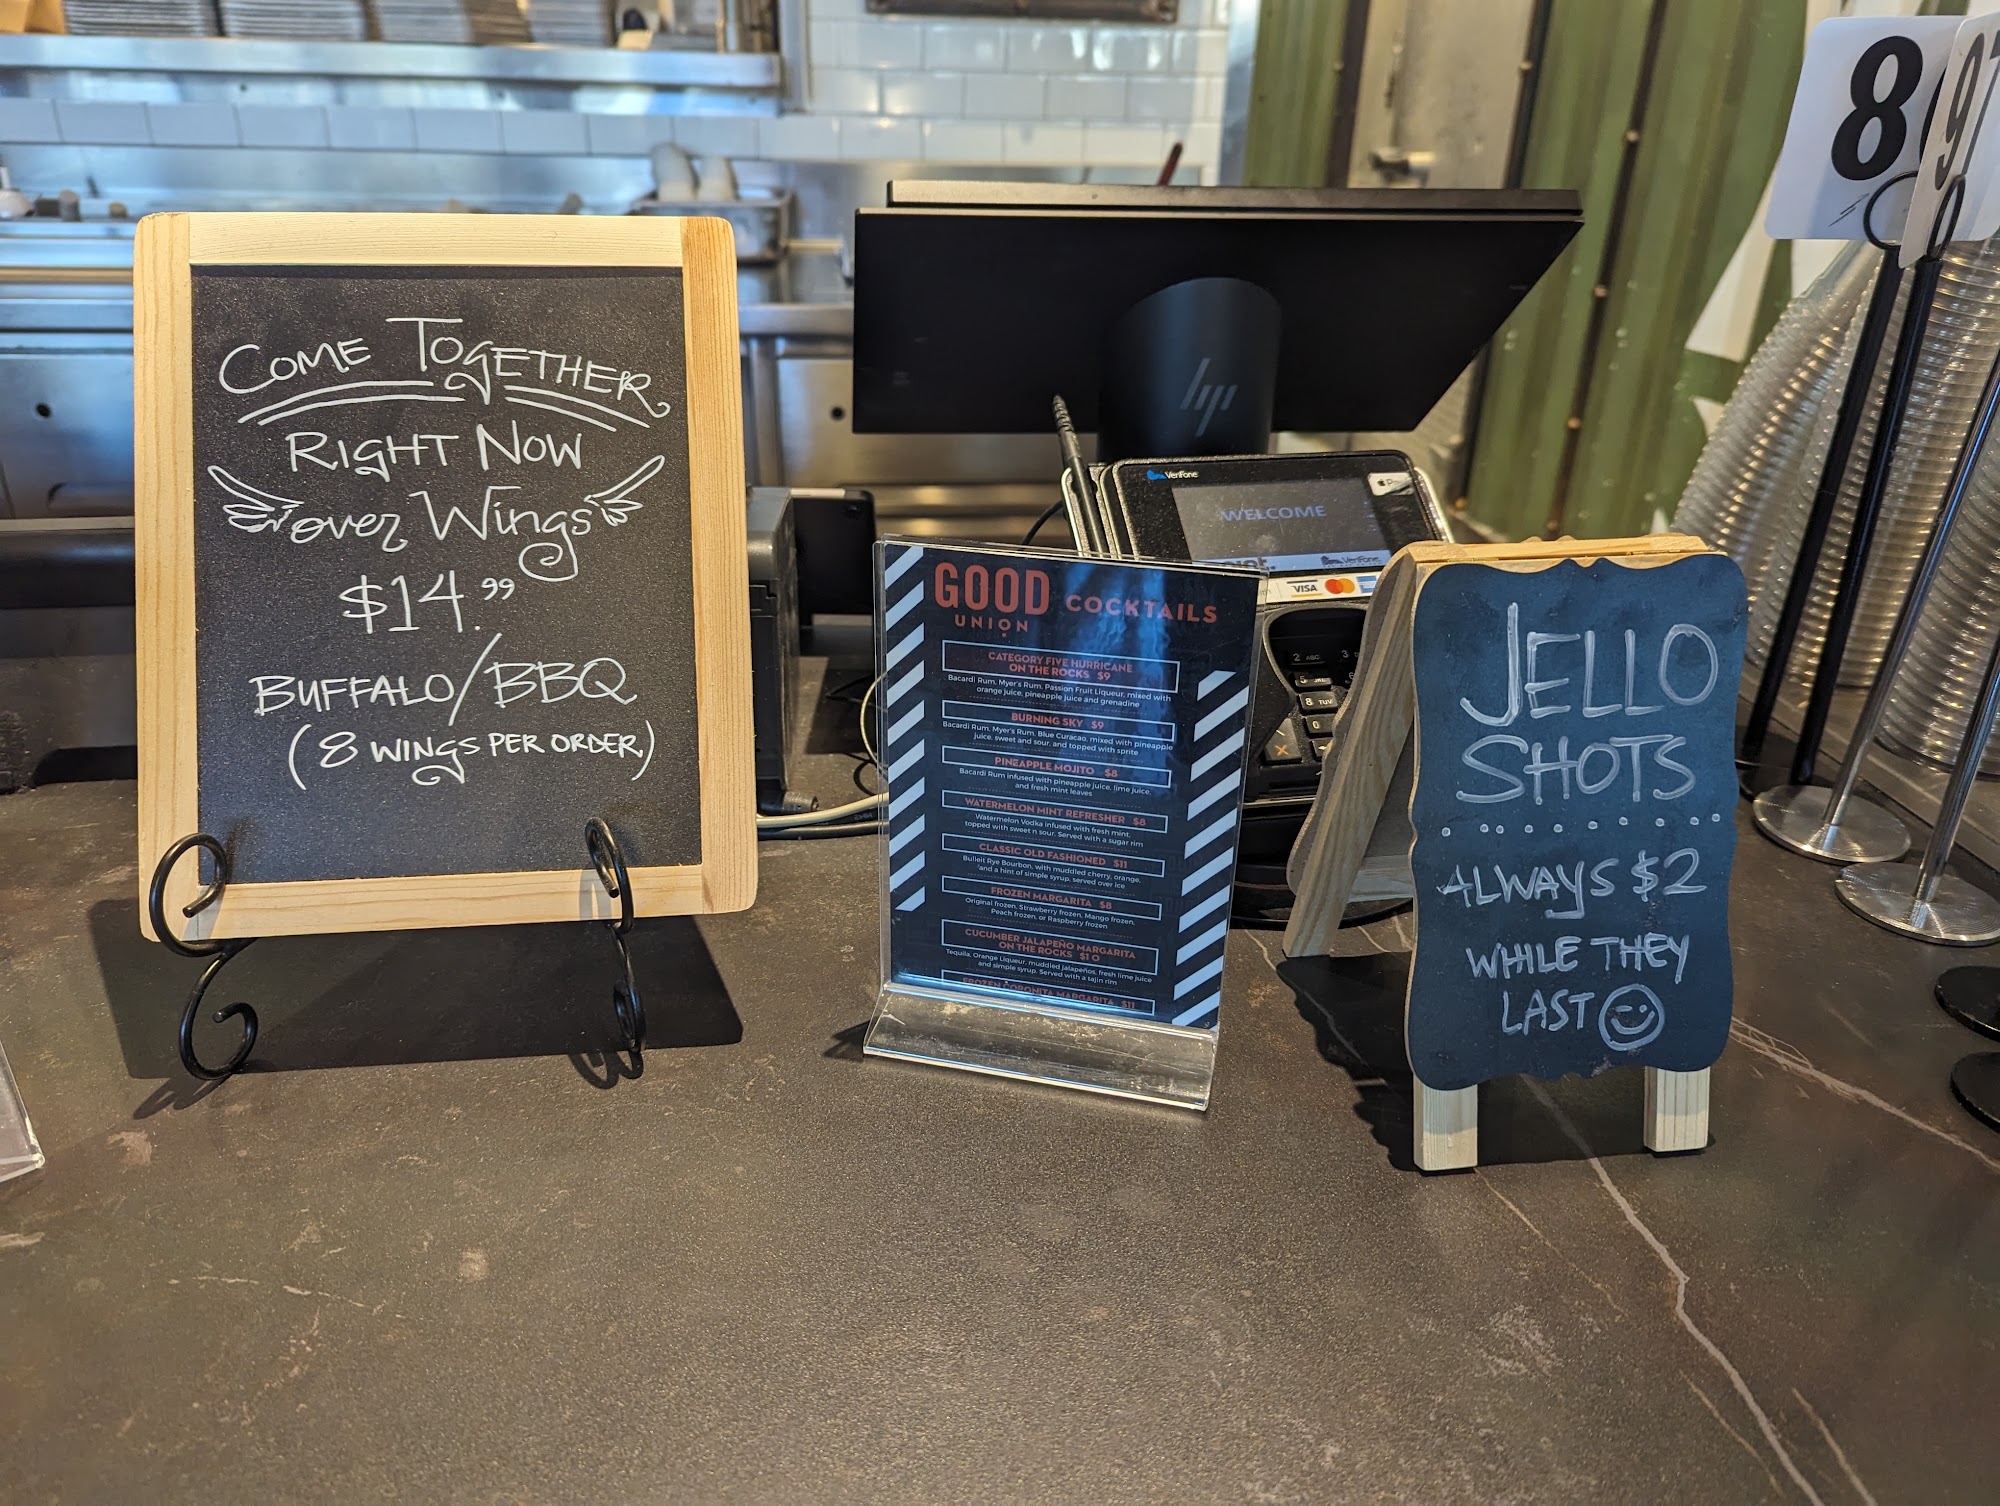 COME TOGETHER
RIGHT NOW
over Wings
$14.99
BUFFALO/BBQ
(8 WINGS PER ORDER)
hp
VeriFone
WELCOME
VeriFone
VISA
GOOD
UNION
COCKTAILS
CATEGORY FIVE HURRICANE
ON THE ROCKS $9
Bacardi Rum, Myer's Rum, Passion Fruit Liqueur, mixed with
orange juice, pineapple juice and grenadine
BURNING SKY $9
Bacardi Rum, Myer's Rum, Blue Curacao, mixed with pineapple
juice, sweet and sour, and topped with sprite
PINEAPPLE MOJITO $8
Bacardi Rum infused with pineapple juice, lime juice,
and fresh mint leaves
WATERMELON MINT REFRESHER $8
Watermelon Vodka infused with fresh mint,
topped with sweet n sour. Served with a sugar rim
CLASSIC OLD FASHIONED $11
Bulleit Rye Bourbon, with muddled cherry, orange,
and a hint of simple syrup, served over ice
FROZEN MARGARITA $8
Original frozen, Strawberry frozen, Mango frozen,
Peach frozen, or Raspberry frozen
CUCUMBER JALAPEÑO MARGARITA
ON THE ROCKS $10
Tequila, Orange Liqueur, muddled jalapeños, fresh lime juice
and simple syrup. Served with a tajin rim
FROZEN CORONITA MARGARITA $11
JELLO
SHOTS
ALWAYS $2
WHILE THEY
LAST
8
97